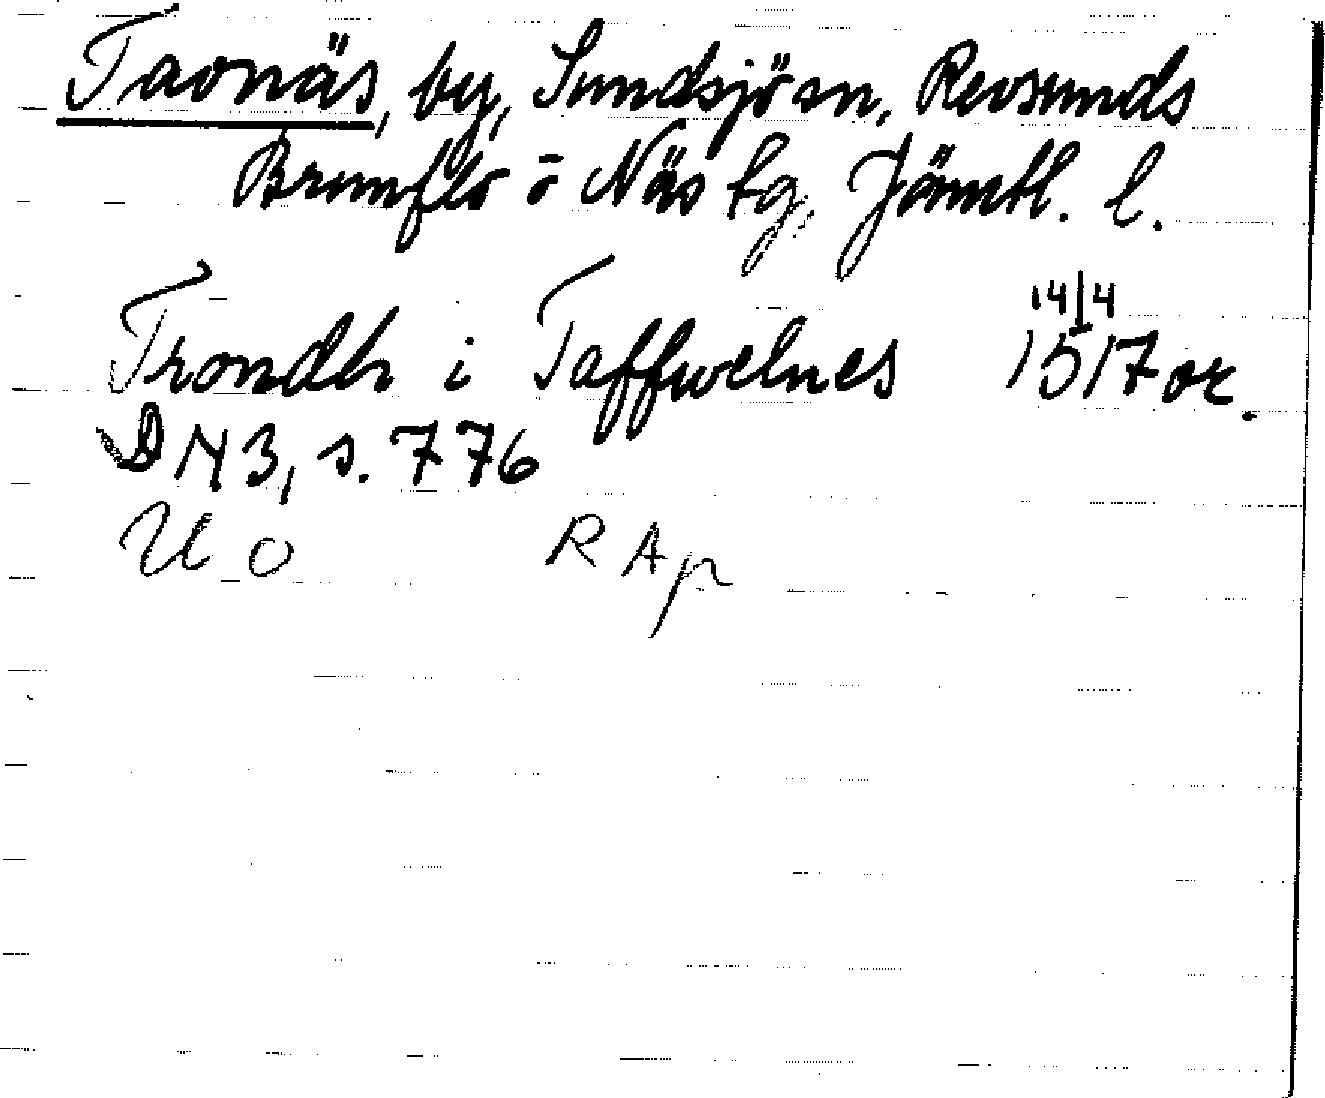 Tavnäs, by, Sundsjö sn, Revsunds
Brunflo o Näs tg, Jämtl. l.
Trondh i Taffwelnes 14/4 1517 or.
DN 3, s. 776
U O RAp